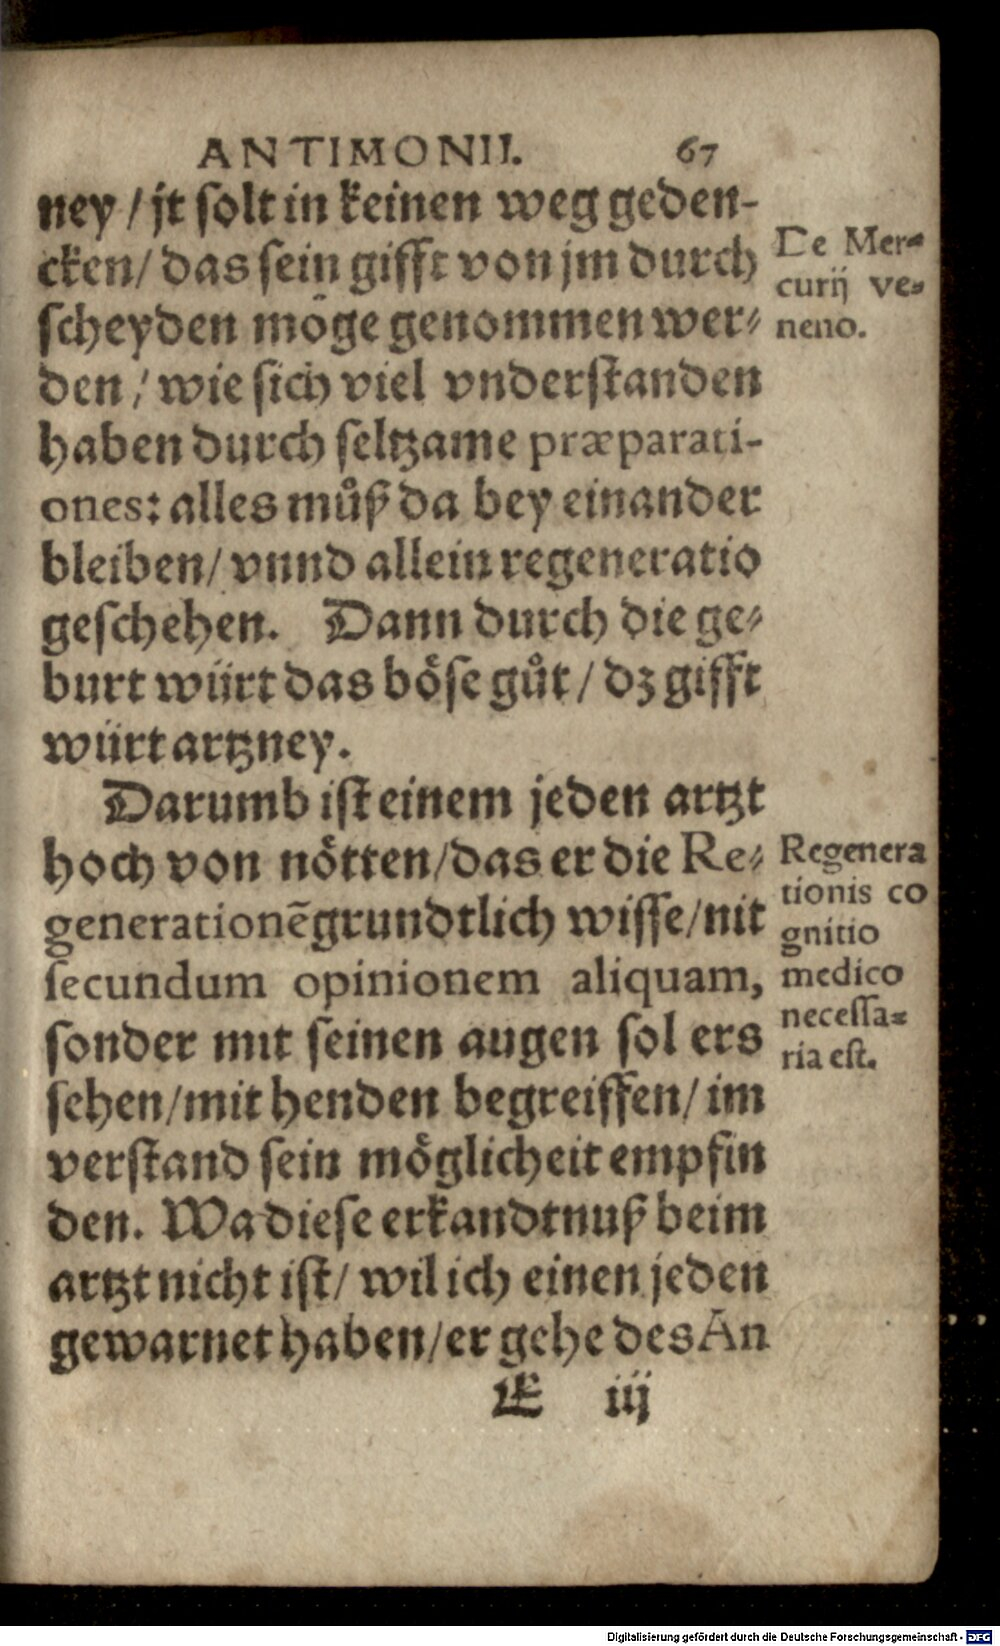 ANTIMONII. 67
ney / jt solt in keinen weg geden-
cken / das sein gifft von jm durch
scheyden möge genommen wer-
den / wie sich viel vnderstanden
haben durch seltzame præparati-
ones: alles můß da bey einander
bleiben / vnnd allein regeneratio
geschehen. Dann durch die ge-
burt würt das böse gůt / dz gifft
würt artzney.
Darumb ist einem jeden artzt
hoch von nötten / das er die Re-
generationẽ grundtlich wisse / nit
secundum opinionem aliquam,
sonder mit seinen augen sol ers
sehen / mit henden begreiffen / im
verstand sein möglicheit empfin
den. Wa diese erkandtnuß beim
artzt nicht ist / wil ich einen jeden
gewarnet haben / er gehe des An
E iij
De Mer-
curij ve-
neno.
Regenera
tionis co
gnitio
medico
necessa-
ria est.
Digitalisierung gefördert durch die Deutsche Forschungsgemeinschaft - DFG